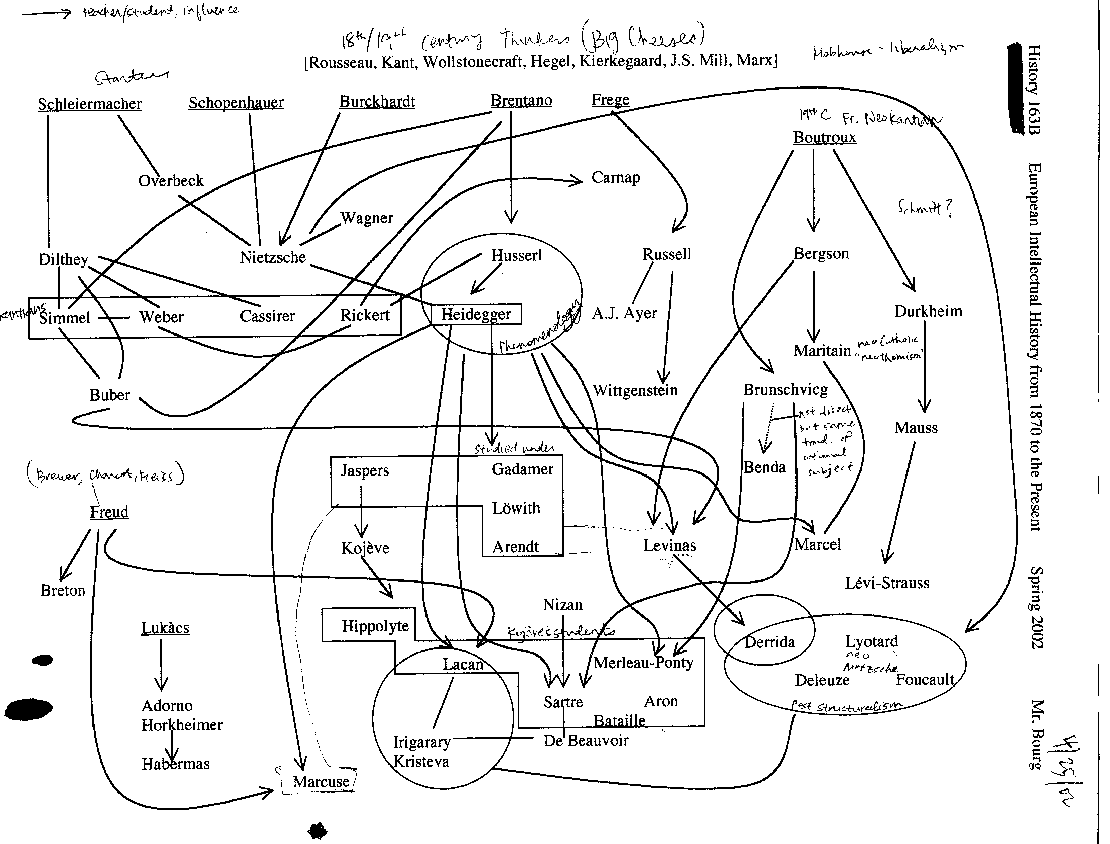 teacher/student, influence
18th/19th Century Thinkers (Big Cheeses)
[Rousseau, Kant, Wollstonecraft, Hegel, Kierkegaard, J.S. Mill, Marx]
Hobhouse - liberalism
Schleiermacher
Schopenhauer
Burckhardt
Brentano
Frege
19th C Fr. Neokantian
Boutroux
Overbeck
Carnap
Wagner
Schmitt?
Dilthey
Nietzsche
Husserl
Russell
Bergson
Simmel
Weber
Cassirer
Rickert
Heidegger
Phenomenology
A.J. Ayer
Durkheim
Maritain
neoCatholic
"neothomism"
Buber
Wittgenstein
Brunschvicg
not direct
but same
trad. of
rational
subject
Mauss
Benda
studied under
Jaspers
Gadamer
Löwith
Arendt
(Breuer, Charcot, Fleiss)
Freud
Kojève
Levinas
Marcel
Breton
Lévi-Strauss
Nizan
Lukàcs
Hippolyte
Kojève's students
Derrida
Lyotard
neo
Nietzsche
Lacan
Merleau-Ponty
Deleuze
Foucault
Post structuralism
Adorno
Horkheimer
Sartre
Aron
Bataille
Irigarary
Kristeva
De Beauvoir
Habermas
Marcuse
History 163B European Intellectual History from 1870 to the Present Spring 2002 Mr. Bourg
4/25/02